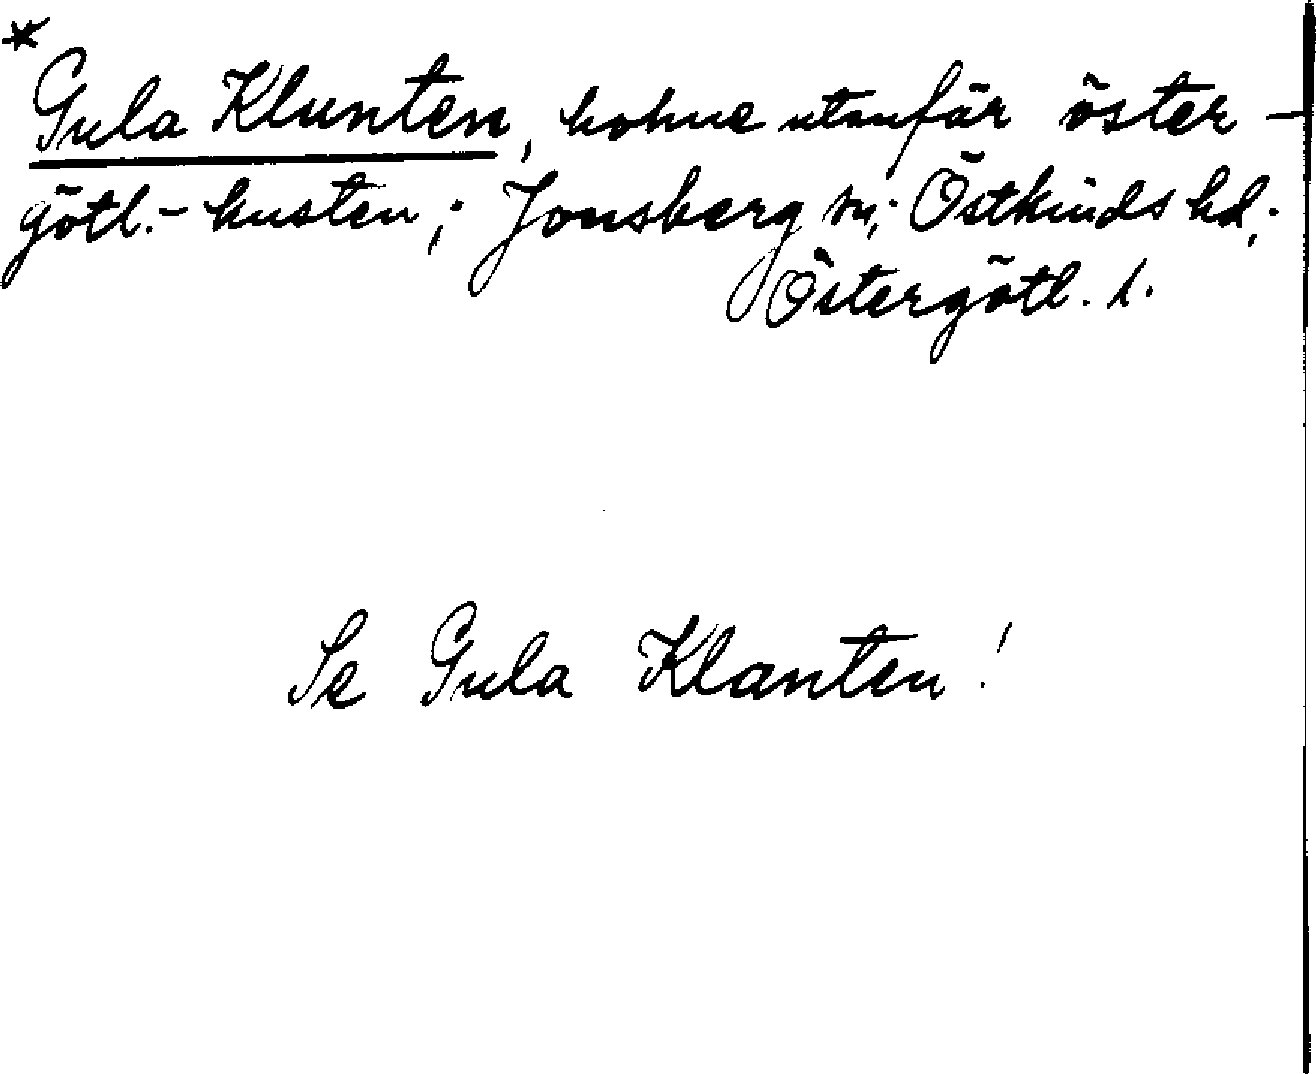 * Gula Klunten, holme utanför öster-
götl.-kusten; Jonsberg sn; Östkinds hd,
Östergötl. l.
Se Gula Klanten!